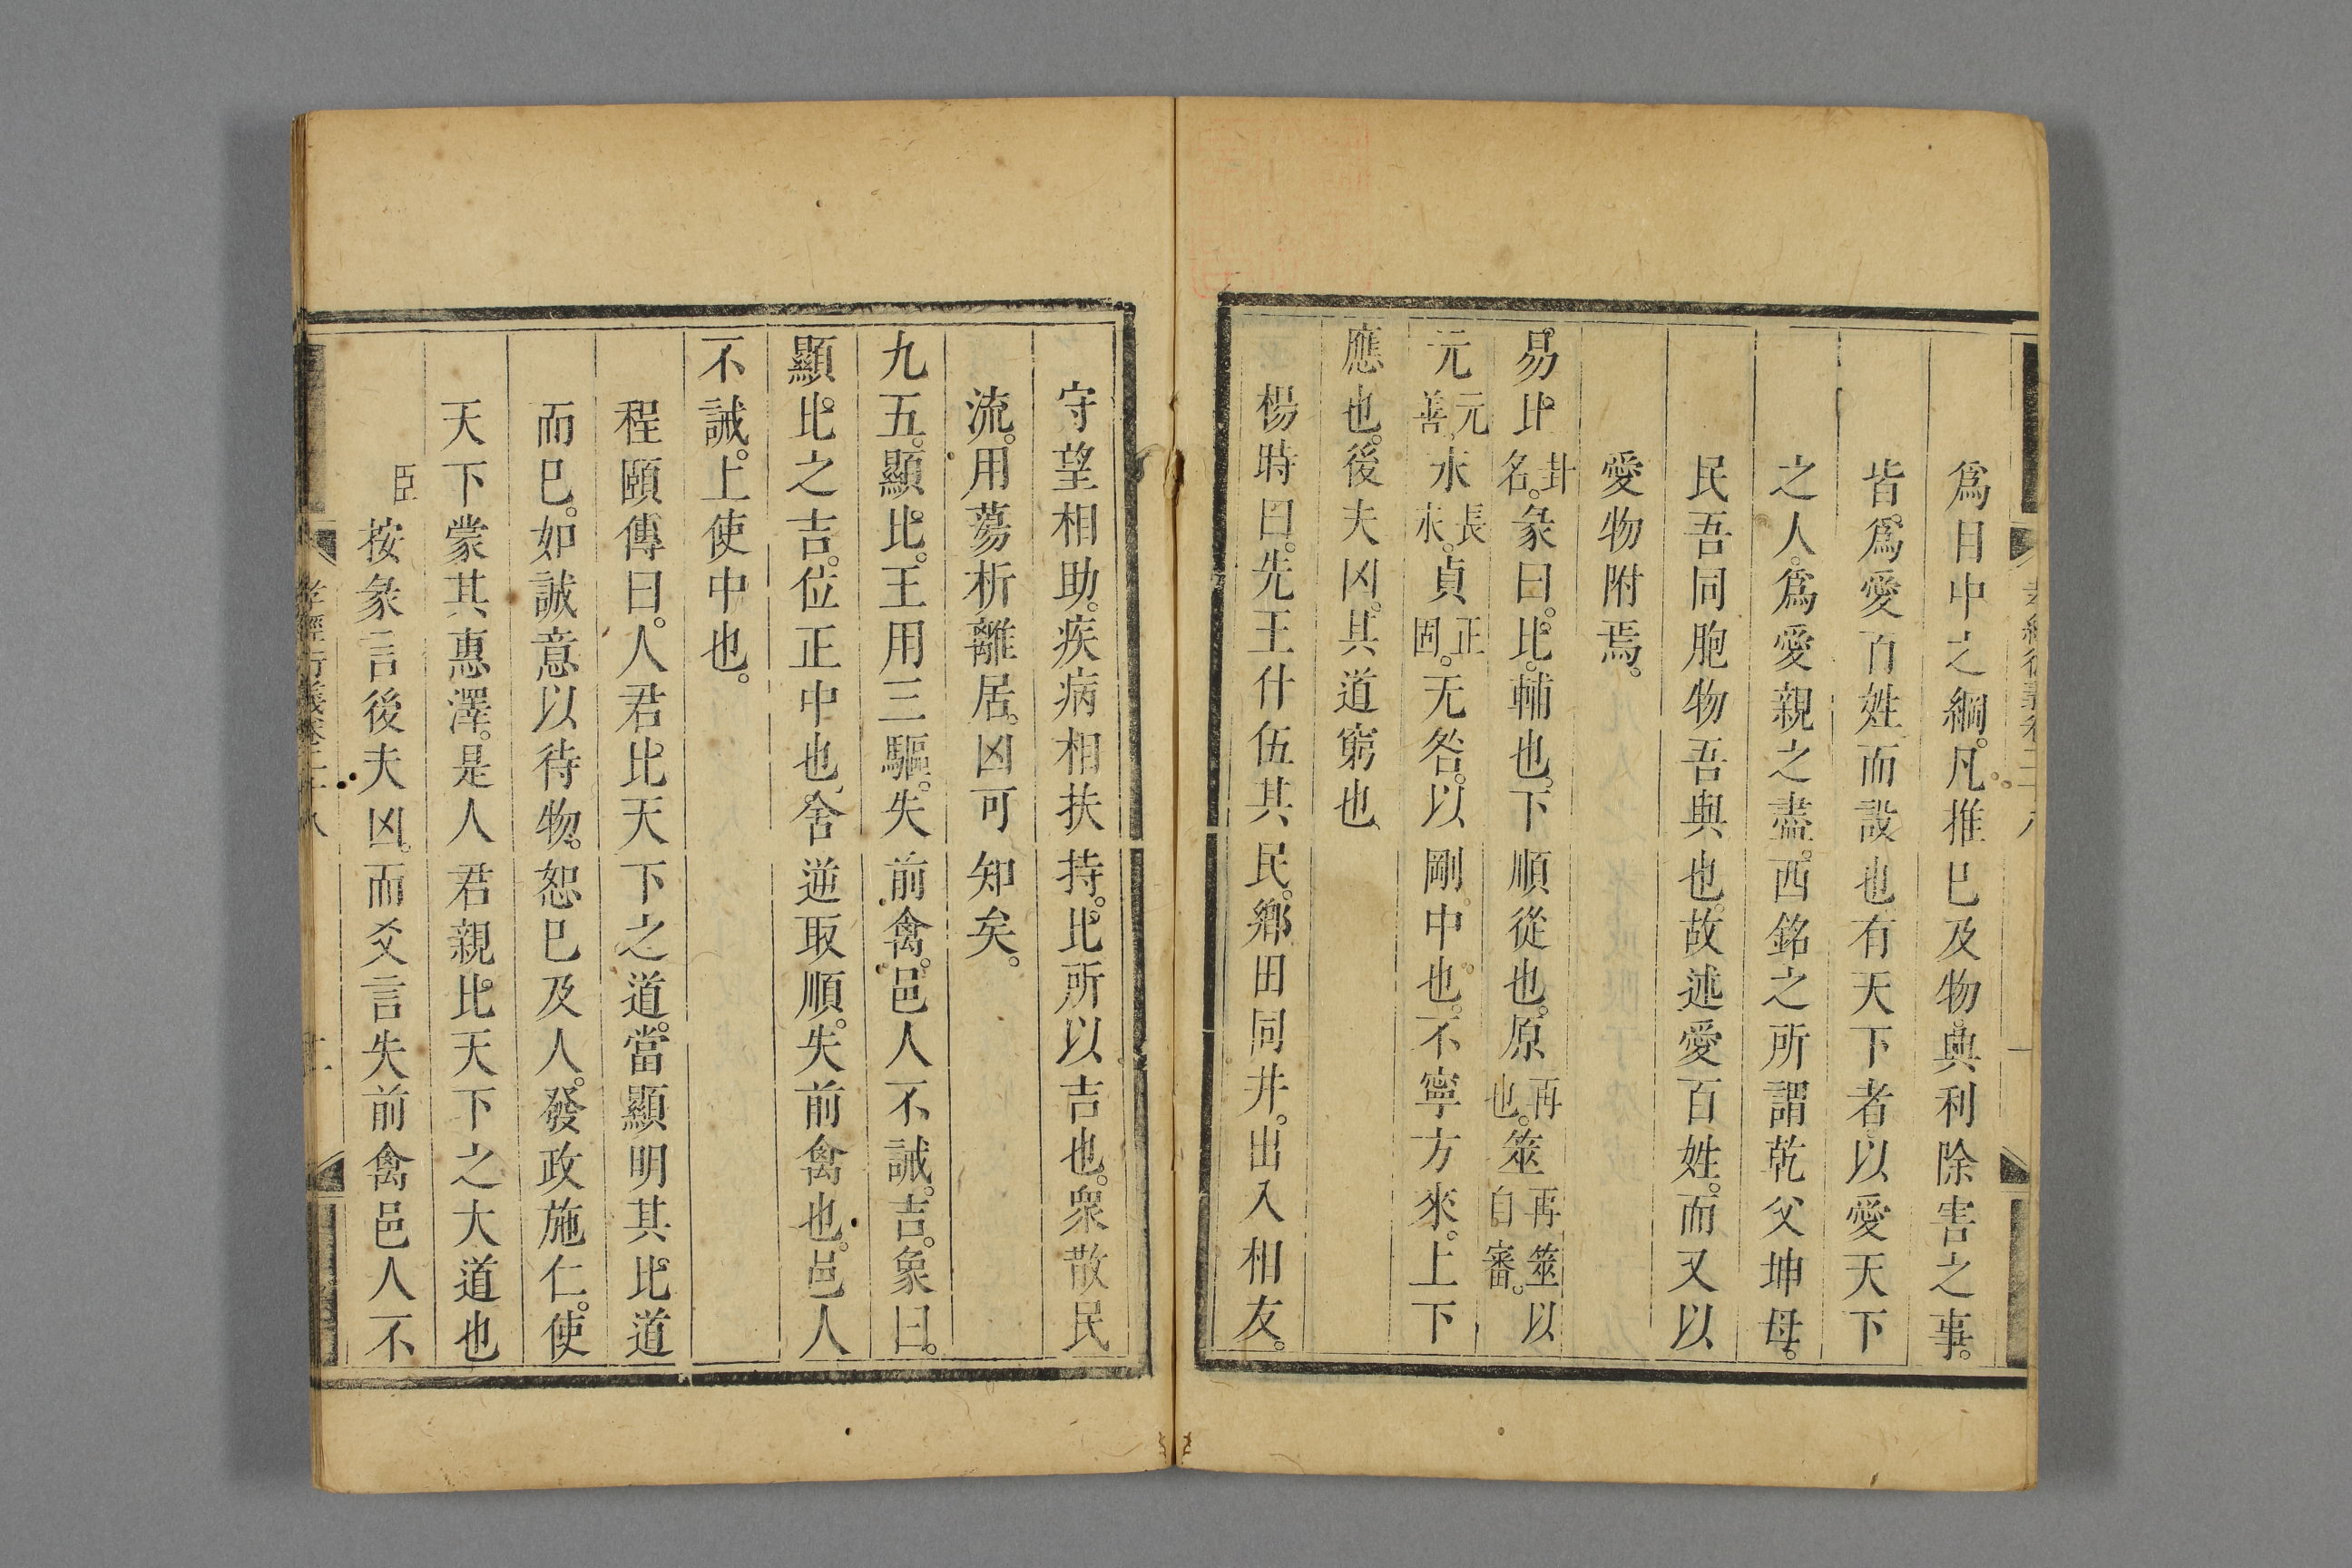 爲目中之綱。凡推巳及物。興利除害之事。
皆爲愛百姓而設也。有天下者。以愛天下
之人。爲愛親之盡。西銘之所謂乾父坤母。
民吾同胞物吾與也。故述愛百姓。而又以
愛物附焉。
易。比卦名。彖曰。比。輔也。下順從也。原再也。筮再筮自審。以
元元善永長永。貞正固。无咎。以剛中也。不寧方來。上下
應也。後夫凶。其道窮也
楊時曰。先王什伍其民。鄉田同井。出入相友。
守望相助。疾病相扶持。比所以吉也。衆散民
流。用蕩析離居。凶可知矣。
九五。顯比。王用三驅。失前禽。邑人不誡。吉。象曰。
顯比之吉。位正中也。舍逆取順。失前禽也。邑人
不誡。上使中也。
程頤傳曰。人君比天下之道。當顯明其比道
而巳。如誠意以待物。恕巳及人。發政施仁。使
天下蒙其惠澤。是人君親比天下之大道也
臣按彖言後夫凶。而爻言失前禽邑人不
孝經衍義卷二十八